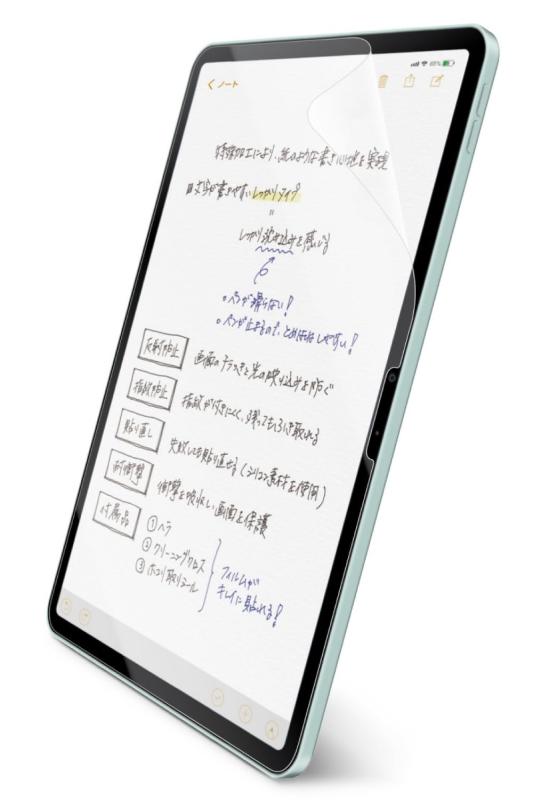 85%
ノート
特殊加工により、紙のような書き心地を実現
文字が書きやすいしっかりタイプ
=
しっかり沈み込みを感じる
・ペンが滑らない!
・ペンが止まるので、とめはねしやすい!
反射防止 画面のチラつきと光の映り込みを防ぐ
指紋防止 指紋が付きにくく、残ってもふき取れる
貼り直し 失敗しても貼り直せる(シリコン素材を使用)
耐衝撃 衝撃を吸収し画面を保護
付属品 ①ヘラ
②クリーニングクロス
③ホコリ取りシール
フィルムが
キレイに貼れる!